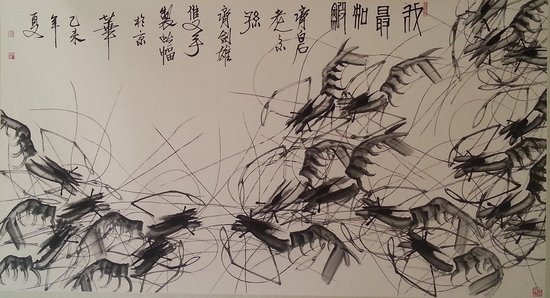 我
最
知
蝦
齊白石
老
孫
齊劍雄
雙手
製此幅
於京
華
乙未
年
夏